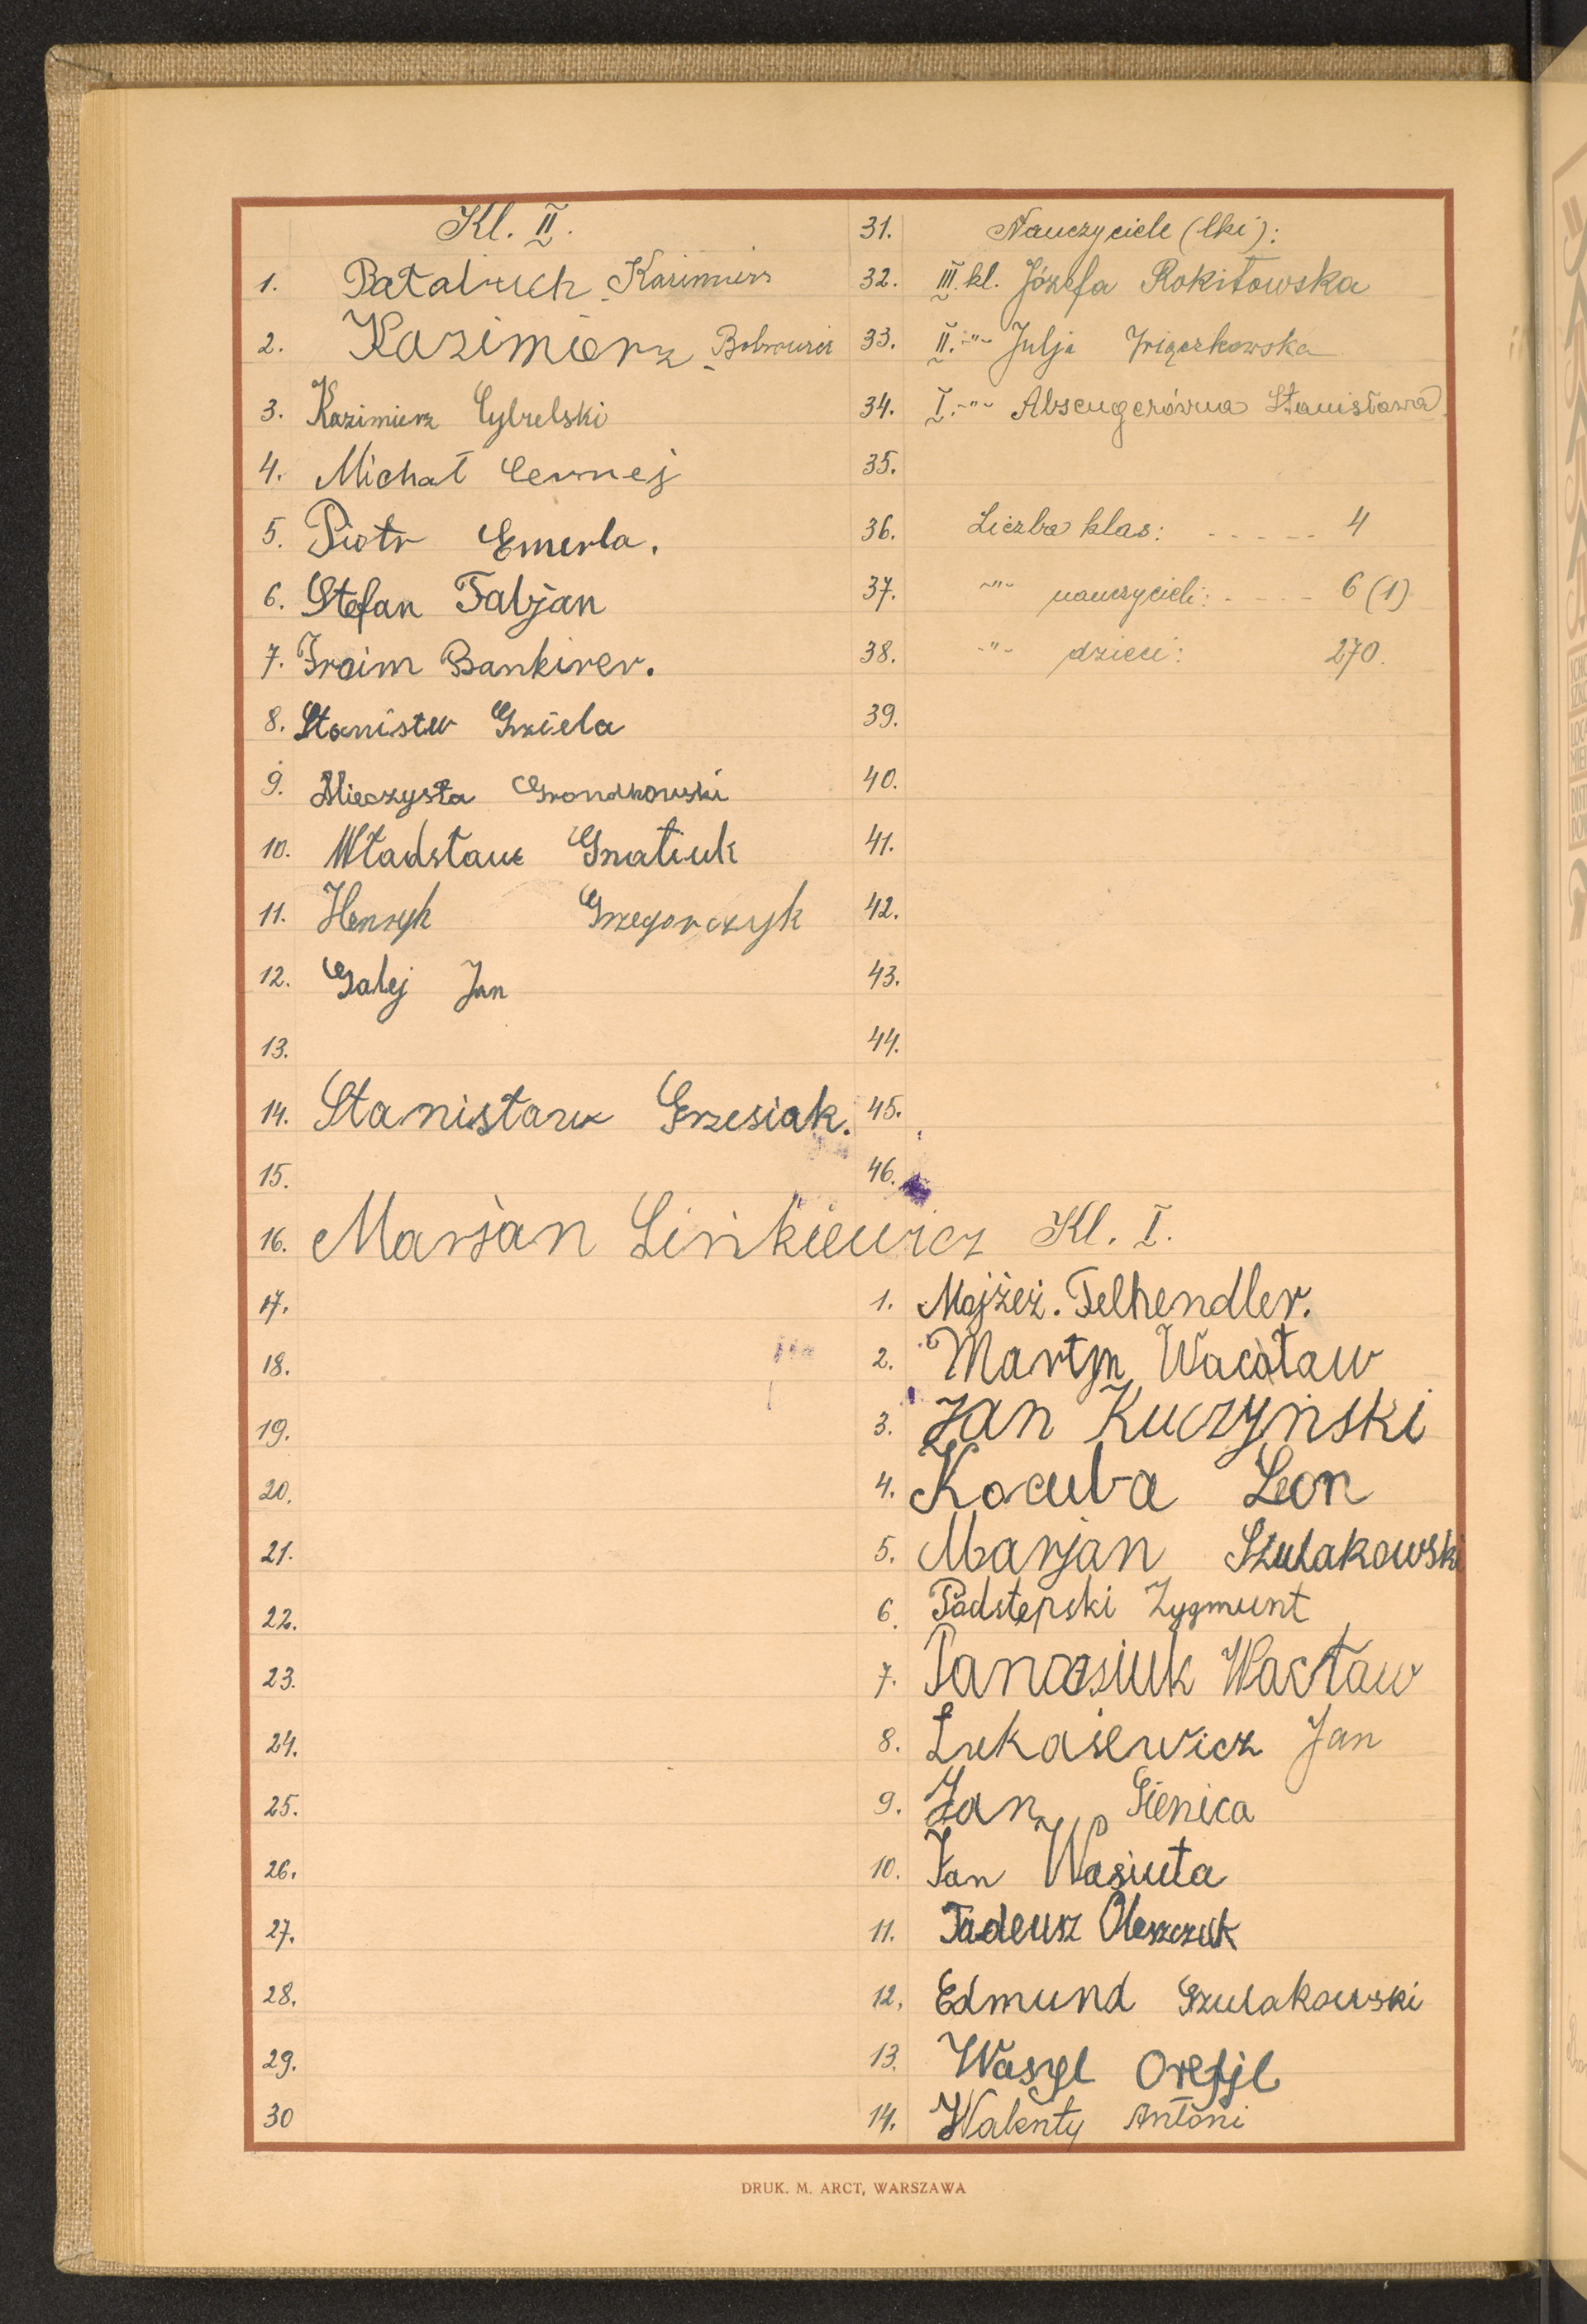 Kl. II.
1. Batabuch Kazimierz
2. Kazimierz Bobrowicz
3. Kazimierz Cybulski
4. Michał Cernej
5. Piotr Emerla.
6. Stefan Fabjan
7. Froim Bankirer.
8. Stanistw Gziela
9. Mieczysła Grondkowski
10. Władstaw Gnatiuk
11. Henryk Grzegorczyk
12. Galej Jan
13.
14. Stanistaw Grzesiak.
15.
16. Marjan Linkiewicz
17.
18.
19.
20.
21.
22.
23.
24.
25.
26.
27.
28.
29.
30
31. Nauczyciele (lki):
32. III. kl. Józefa Rokitowska
33. II. -"- Julja
34. I. -"- Absengerówna Stanisława
35.
36. Liczba klas: - - - - - 4
37. -"- nauczycieli: - - - - 6 (1)
38. -"- dzieci: 270.
39.
40.
41.
42.
43.
44.
45.
46.
Kl. I.
1. Mojżeż. Felhendler.
2. Martyn Wacław
3. Jan Kuczyński
4. Kocuba Leon
5. Marjan Szulakowski
6. Podstępski Zygmunt
7. Panasiuk Wacław
8. Łukasewicz Jan
9. Jan Sienica
10. Jan Wasiuta
11. Tadeusz Oleszczuk
12. Edmund Szulakowski
13. Wasyl Orefjl
14. Walenty Antoni
DRUK. M. ARCT, WARSZAWA